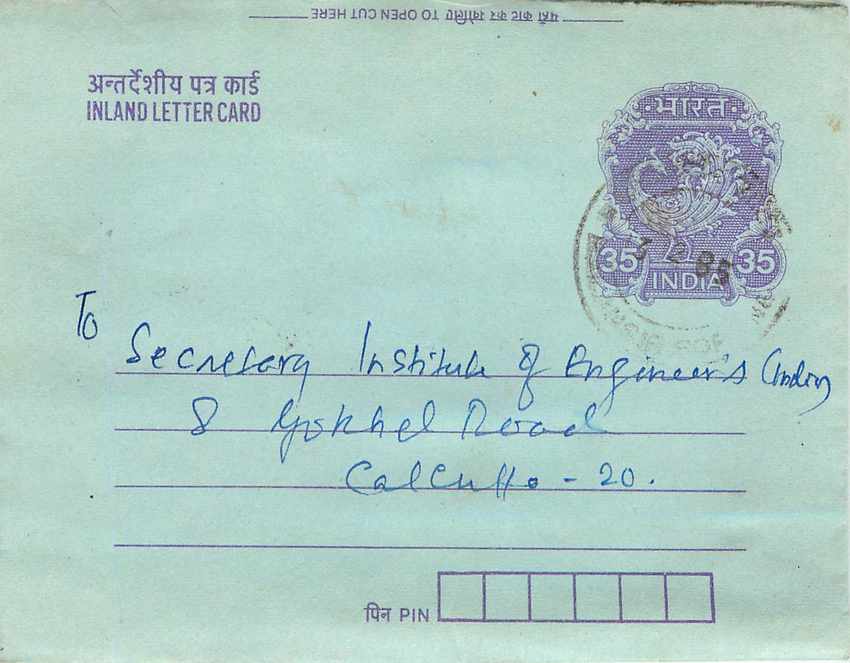 यहाँ काट कर खोलिए TO OPEN CUT HERE
अन्तर्देशीय पत्र कार्ड
INLAND LETTER CARD
भारत
35 35
INDIA
3 2 85
To
Secretary Institute of Engineer's (India)
8 Gokhel Road
Calcutta - 20.
पिन PIN